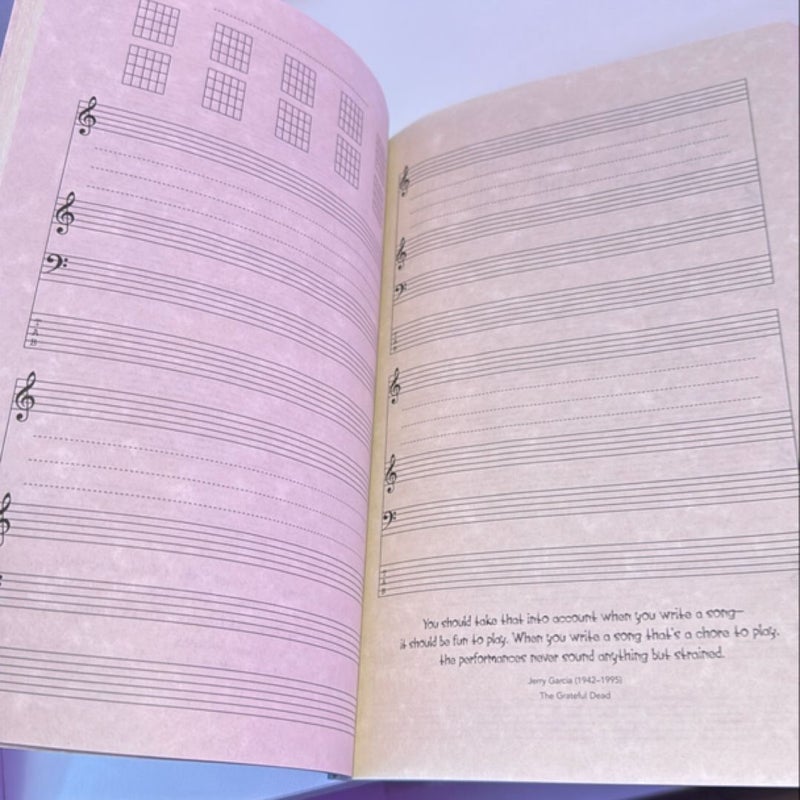 T
A
B
You should take that into account when you write a song—
it should be fun to play. When you write a song that's a chore to play,
the performances never sound anything but strained.
Jerry Garcia (1942–1995)
The Grateful Dead